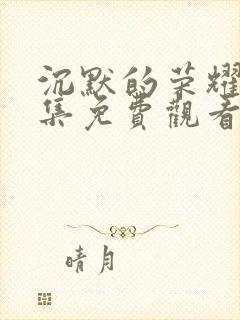 沉默的荣耀
集免費觀看
晴月